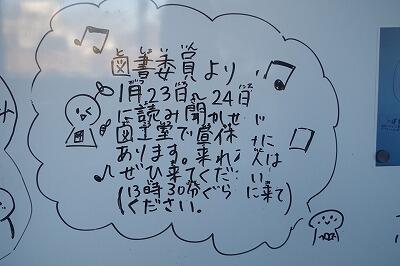 図書委員より
1月23日、24日
に読み聞かせ
図工室で昼休
あります。来れ 人は
ぜひ来てくだ い。
(13時30分ぐら に来て
ください。)